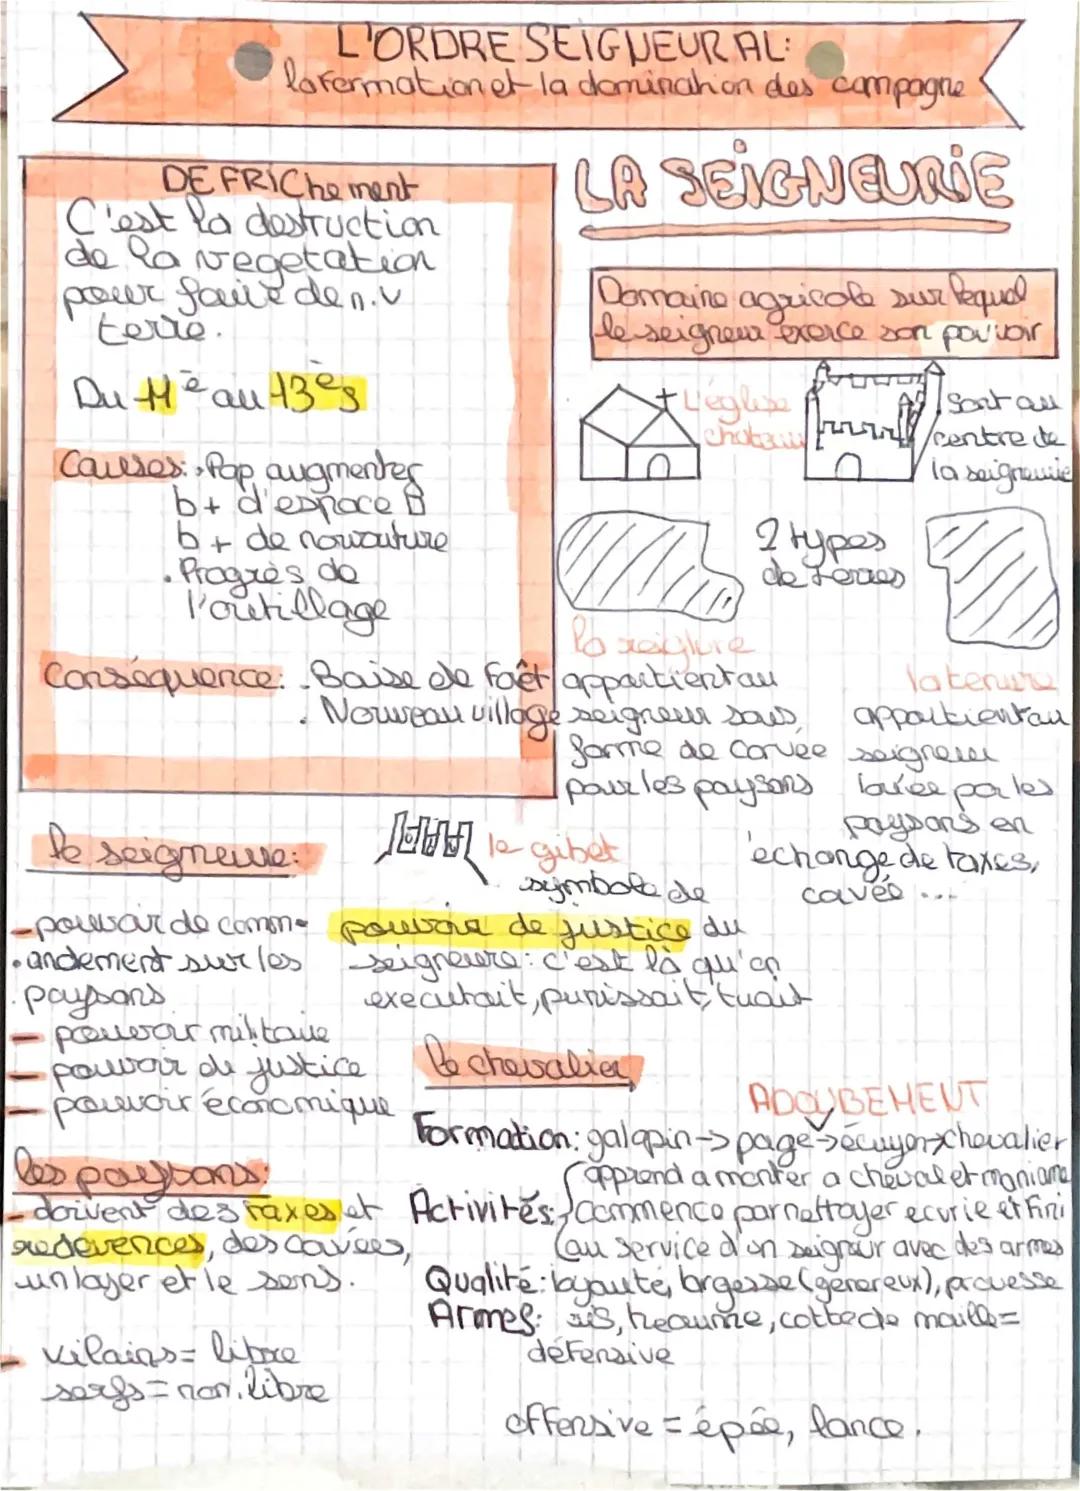 L'ORDRE SEIGNEURAL:
la formation et la domination des campagne
DEFRIChement
C'est la destruction
de la vegetation
pour faire de n.v
terre.
Du 11è au 13ès
Causes: Pop augmenter
b+ d'espace
b+ de nourriture
. Progrès de
l'outillage
Conséquence: . Baise de foêt
. Nouveau village
LA SEIGNEURIE
Domaine agricole sur lequel
le seigneur exerce son pouvoir
L'église
chateau
Sont au
centre de
la seigneurie
2 types
de terres
la
appartient au
seigneur sous
forme de corvée
pour les paysans
la tenure
appartient au
seigneur
louée par les
paysans en
échange de taxes,
cavée ...
le seigneure:
- pouvoir de comm-
andement sur les
paysans
- pouvoir militaire
- pouvoir de justice
- pouvoir économique
le gibet
symbole de
pouvoir de justice du
seigneure: c'est là qu'on
executait, punissait, tuait
les paysans:
- doivent des taxes et
redevences, des cavées,
un loyer et le sens.
- vilains = libre
serfs = non.libre
le chevalier
ADOUBEMENT
Formation: galopin -> page -> écuyer -> chevalier
Activités: apprend a monter a cheval et
commence par nettoyer ecurie et fini
au service d'un seigneur avec des armes
Qualité: loyauté, largesse (genereux), prouesse
Armes: heaume, cotte de maille =
défensive
offensive = épée, lance.